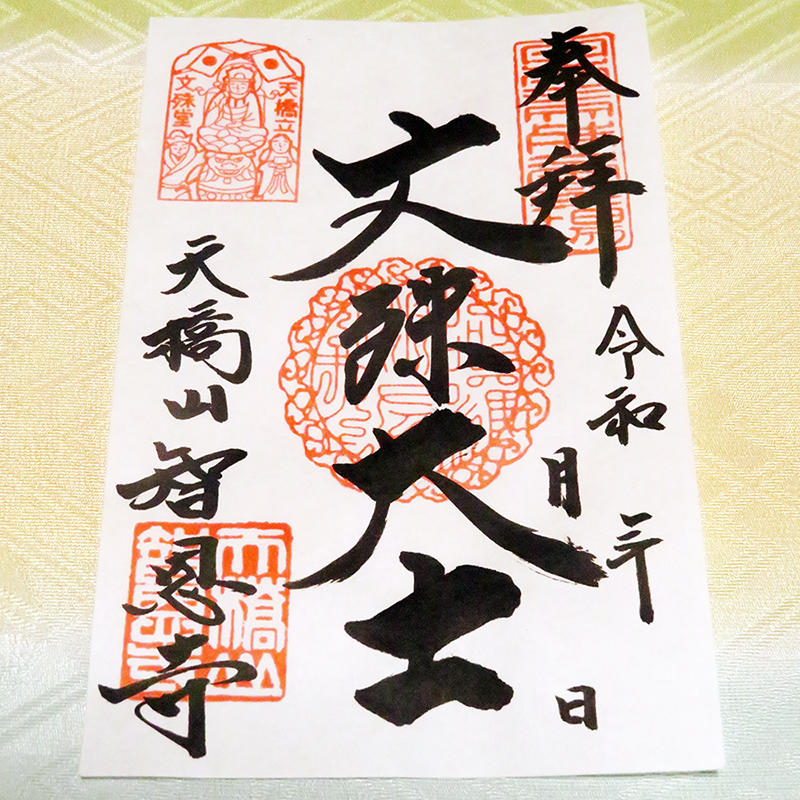 奉拝
令和三年
月
日
文殊大士
天橋山
智恩寺
天橋立
文殊堂
天橋山
智恩寺